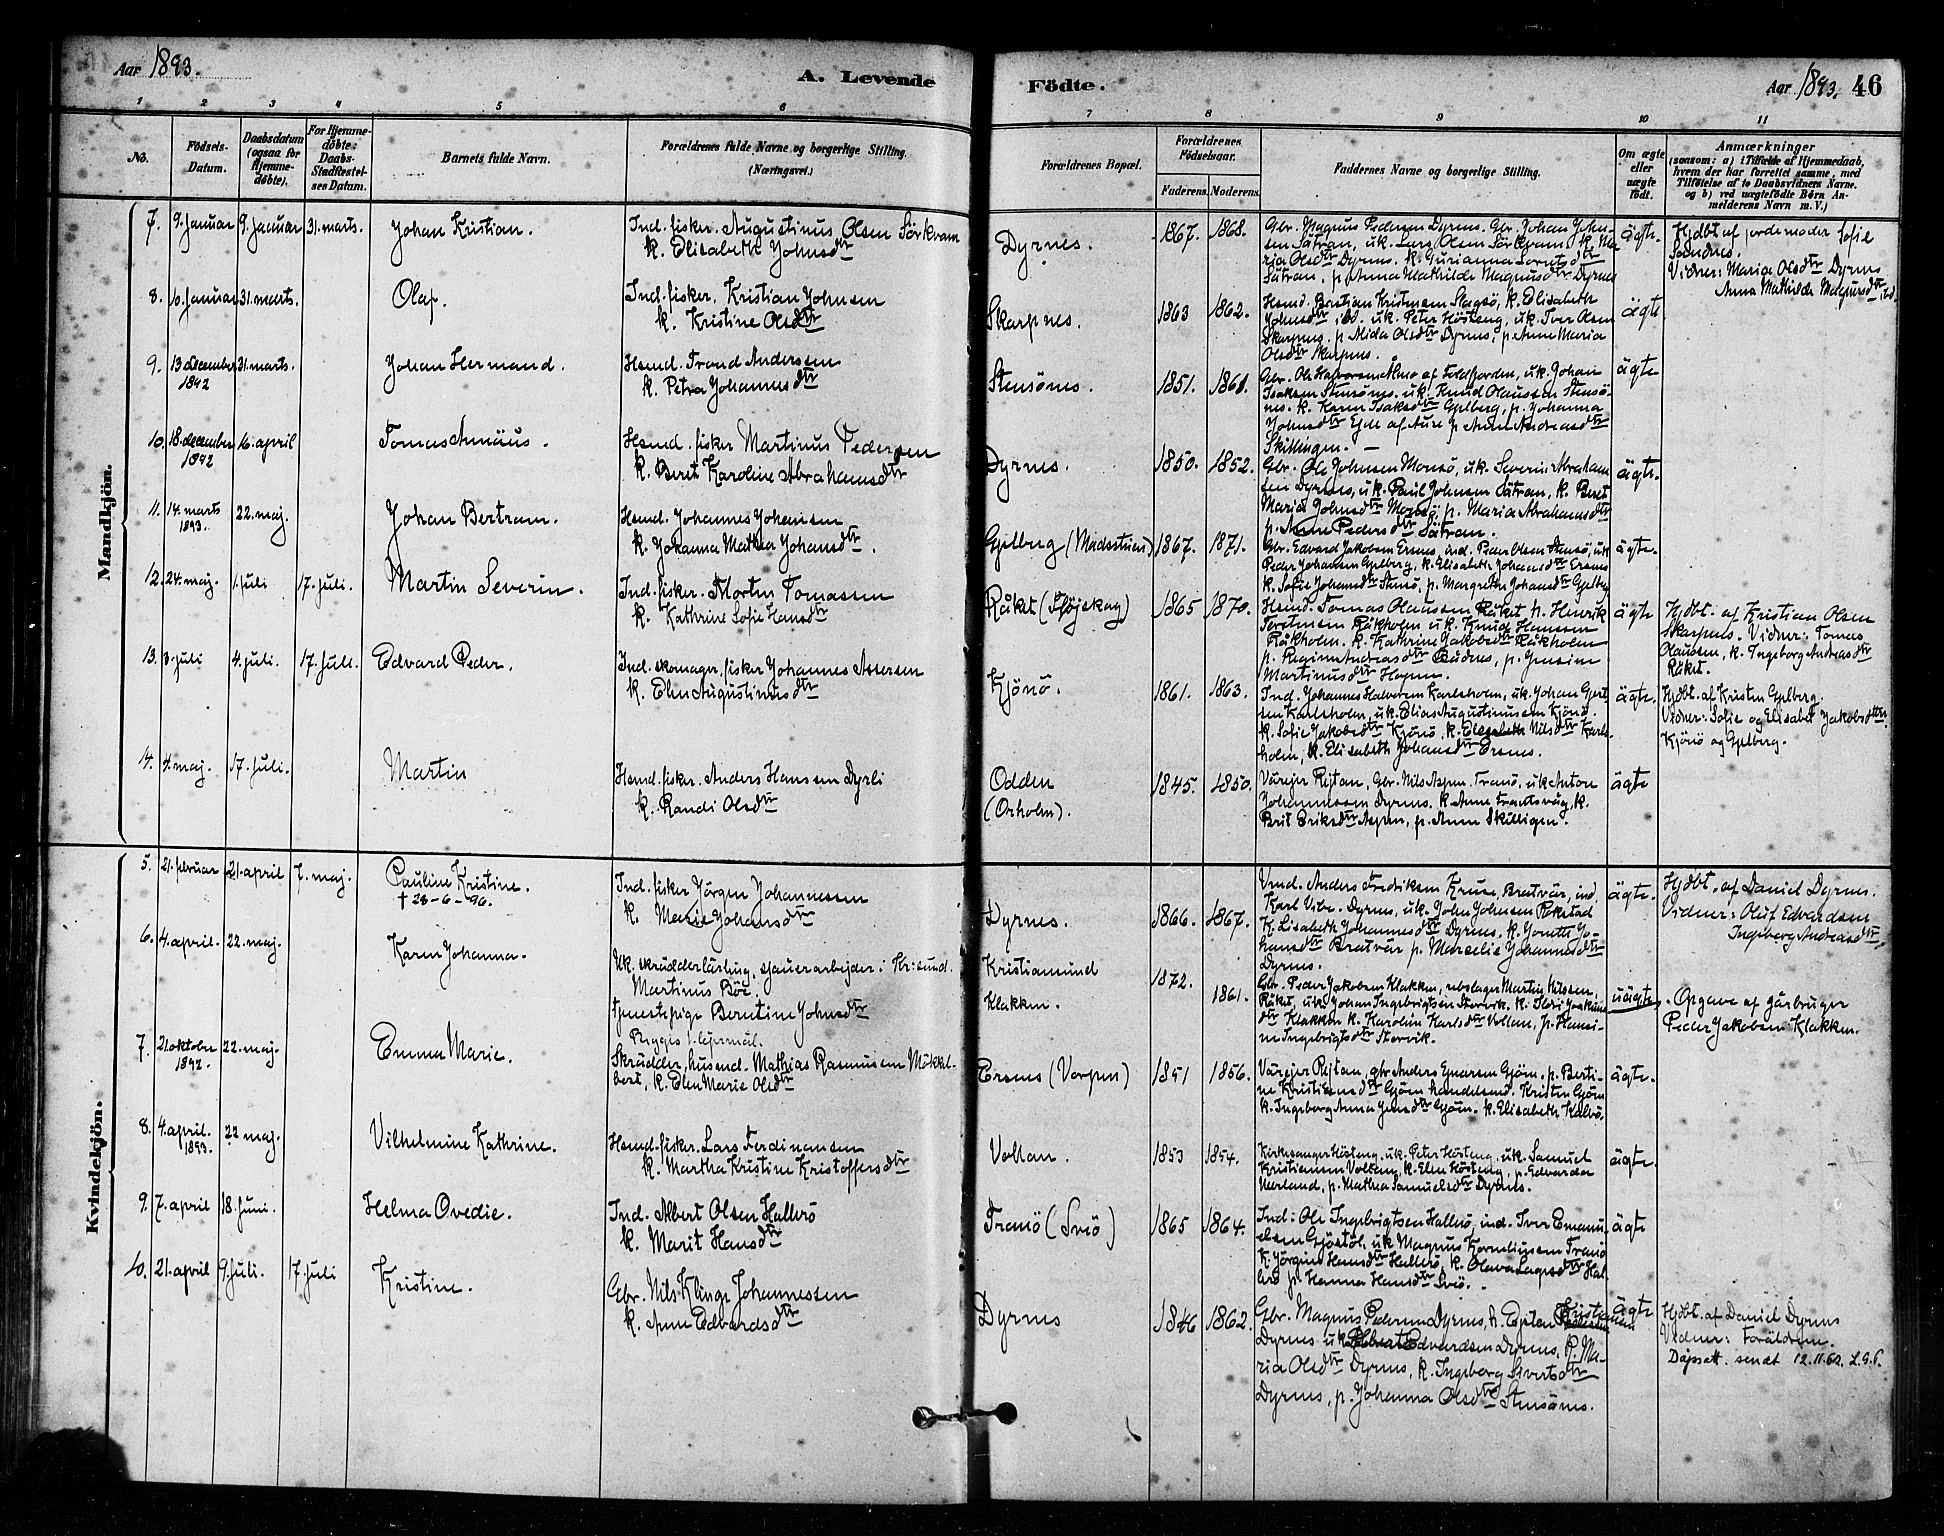 Aar 1893.
A. Levende Födte.
Aar 1893. 46
1 2 3 4 5 6 7 8 9 10 11
No.
Födsels-Datum.
Daabsdatum (ogsaa for Hjemme-döbte).
For Hjemme-döbte: Daabs-Stadfæstel-ses Datum.
Barnets fulde Navn.
Forældrenes fulde Navne og borgerlige Stilling. (Næringsvei.)
Forældrenes Bopæl.
Forældrenes Födselsaar.
Faderens. Moderens.
Faddernes Navne og borgerlige Stilling.
Om ægte eller uægte födt.
Anmærkninger
(saasom: a) i Tilfælde af Hjemmedaab,
hvem der har forrettet samme, med
Tilföielse af to Daabsvidners Navne.
og b) ved uægtefödte Börn An-
melderens Navn m. V.)
Mandkjön.
7. 9. Januar 9. Januar 31. marts. Johan Kristian.
Ind. fisker. Augustinus Olsen Sörkvam
k. Elisabeth Johnsdtr
Dyrnes. 1867. 1868.
Gbr. Magnus Pedersen Dyrnes. Gbr. Johan John-
sen Sätran, uk. Lars Olsen Sörkvam, k. Ma-
ria Olsdtr Dyrnes. k. Gurianna Lorntsdtr
Sätran, p. Anna Mathilde Magnusdtr Dyrnes
ägte.
Hjdbt af jordemoder Sofie
Vidner: Maria Olsdtr Dyrnes
Anna Mathilde Magnusdtr ibd.
8. 10. Januar 31. marts. Olaf.
Ind. fisker. Kristian Johnsen
k. Kristine Olsdtr
Skarpnes. 1863 1862.
Hsmd. Bastian Kristensen Slagsö, k. Elisabeth
Johnsdtr ibd. uk. Peter Hösteng, uk. Iver Olsen
Skarpnes. p. Alida Olsdtr Dyrnes, p. Anne Maria
Olsdtr Skarpnes.
ägte.
9. 13 december 1892 31. marts. Johan Hermand.
Hsmd. Trond Anderssen
k. Petra Johannesdtr
Stensönes. 1851. 1861.
Gbr. Ole Halvorsen Almo af Foldfjorden, uk. Johan
Isaksen Stensönes. uk. Knud Olaussen Stensö-
nes. k. Karen Isaksdtr Gjelberg, p. Johanna
Johnsdtr Ejde af Aure p. Anne Andreasdtr
Skillingen. —
ägte
10. 18. december 1892 16. april Tomas Amäus.
Hsmd. fisker Martinus Pedersen
k. Berit Karoline Abrahamsdtr
Dyrnes. 1850. 1852.
Gbr. Ole Johnsen Monsö, uk. Severin Abraham
sen Dyrnes, uk. Paul Johnsen Sätran, k. Beret
Maria Johnsdtr Monsö, p. Maria Abrahamsdtr
p. Anne Pedersdtr Sätran.
ägte.
11. 14. marts 1893. 22. maj. Johan Bertram.
Hsmd. Johannes Johansen
k. Johanna Mathea Johansdtr.
Gjelberg (Madsstuen) 1867. 1871.
Gbr. Edvard Jakobsen Ersnes, ind. Peder Olsen Stensö, uk
Peder Johansen Gjelberg, k. Elisabeth Johansdtr Ersnes
k. Sofie Johansdtr Stensö, p. Margrethe Johansdtr Gjelberg
ägte.
12. 24. maj. 1. juli 17. juli. Martin Severin.
Ind. fisker. Morten Tomasen
k. Kathrine Sofie Hansdtr
Råket (Flöjskag) 1865 1870.
Hsmd. Tomas Olaussen Råket p. Henrik
Råkholm uk. Knud Hanssen
Råkholm. k. Kathrine Jakobsdtr Råkholm
p. Regine Andreasdtr p. Jensine
Martinusdtr
ägte
Hjdbt. af Kristian Olsen
Skarpnes. Vidner: Tomas
Olaussen, k. Ingeborg Andreasdtr
Råket.
13. 3. juli 4. juli. 17. juli. Edvard Peder.
Ind. skomager, fisker Johannes Assersen
k. Elen Augustinusdtr
Kjönö. 1861. 1863.
Ind. Johannes Halvorsen Karlsholm, uk. Johan Gjert
sen Karlsholm, uk. Elias Augustinussen Kjönö
k. Sofie Jakobsdtr Kjönö, k. Elisabeth Nilsdtr Karls-
holm, k. Elisabeth Johansdtr Ersnes.
ägte.
Hjdbt. af Kristen Gjelberg.
Vidner: Sofie og Elisabet Jakobsdtre
Kjönö og Gjelberg.
14. 4. maj. 17. juli. Martin
Hsmd. fisker. Anders Hansen Dyrli
k. Randi Olsdtr
Odden
(Orholm). 1845. 1850.
Värejer Rejtan, Gbr. Nils Aspen Tranö, uk. Anton
Johannessen Dyrnes. k. Anne k.
Brit Eriksdtr Aspen, p. Anne Skillingen.
ägte
Kvindekjön.
5. 21. februar 21. april 7. maj. Pauline Kristine.
† 28-6-96.
Ind. fisker Jörgen Johannessen
k. Marie Johansdtr
Dyrnes. 1866. 1867.
Vmd. Anders Fredriksen Kruse Bratvär, ind.
Karl Vibe. Dyrnes, uk. John Johnsen Rokstad
k. Lisabeth Johannesdtr Dyrnes, k. Jo-
hansdtr Bratvär p. Marselie Johannesdtr
Dyrnes.
ägte.
Hjdbt. af Daniel Dyrnes.
Vidner: Oluf Edvardsen
Ingeborg Andreasdtr.
6. 4. april. 22. maj. Karen Johanna.
Uk. skrädderlärling, sjauerarbejder i Kr:sund.
Martinus Böe.
tjenestepige Berntine Johnsdtr
Begges 1. lejermål.
Kristiansund
Klakken. 1872. 1861.
Gbr. Peder Jakobsen Klakken, rebslager Martin Nilsen,
Råket, uk. Johan Ingebrigtsen Storvik. k.
dtr Klakken k. Karoline Karlsdtr Vollan, p. Hansi-
ne Ingebrigtsdtr Storvik.
uägte.
Opgave af gårbruger
Peder Jakobsen Klakken.
7. 21. oktober 1892. 22. maj. Emma Marie.
Skrädder, husmd. Mathias Rasmussen Mökkel-
bert, k. Elen Marie Olsdtr
Ersnes (Vorpen) 1851 1856.
Värejer Rejtan, gbr. Anders Ejnarsen Gjöen, p. Berti-
ne Kristiensdtr Gjöen handelsmd. Kristen Gjöen
k. Ingeborg Anna Jensdtr Gjöen. k. Elisabeth Kalvö.
ägte.
8. 4. april. 1893. 22 maj. Vilhelmine Kathrine.
Hsmd. fisker. Lars Ferdinansen
k. Martha Kristine Kristoffersdtr
Vollan. 1853 1854.
Kirkesanger Hösteng, uk. Peter Hösteng, uk. Samuel
Kristiansen Vollan, k. Elen Hösteng, p. Edvarda
Nerland, p. Mathea Samuelsdtr Dyrnes.
ägte.
9. 7. april 18. juni. Helma Ovedie.
Ind. Albert Olsen Hallerö
k. Marit Hansdtr
Tranö (Sveö) 1865 1864.
Ind: Ole Ingebrigtsen Hallerö, ind. Iver Emanu-
elsen Gjöstöl, uk. Magnus Korneliussen Tranö
k. Jörgine Hansdtr Hallerö, k. Olava Larsdtr Hal-
lerö p. Hanna Hansdtr Sveö.
ägte
10. 21. april 9. juli. 17. juli Kristine.
Gbr. Nils Klinge Johannessen
k. Anne Edvardsdtr
Dyrnes 1846 1862.
Gbr. Magnus Pedersen Dyrnes, h. Espten Kristiansen
Dyrnes uk. Edvardsen Dyrnes, k. Ma-
ria Olsdtr Dyrnes, k. Ingeborg Sivertsdtr
Dyrnes, p. Johanna Olsdtr Stensönes.
ägte
Hjdbt. af Daniel Dyrnes
Vidner: Foräldrene.
Dåpsatt. sendt 12.11.62. L.G.S.